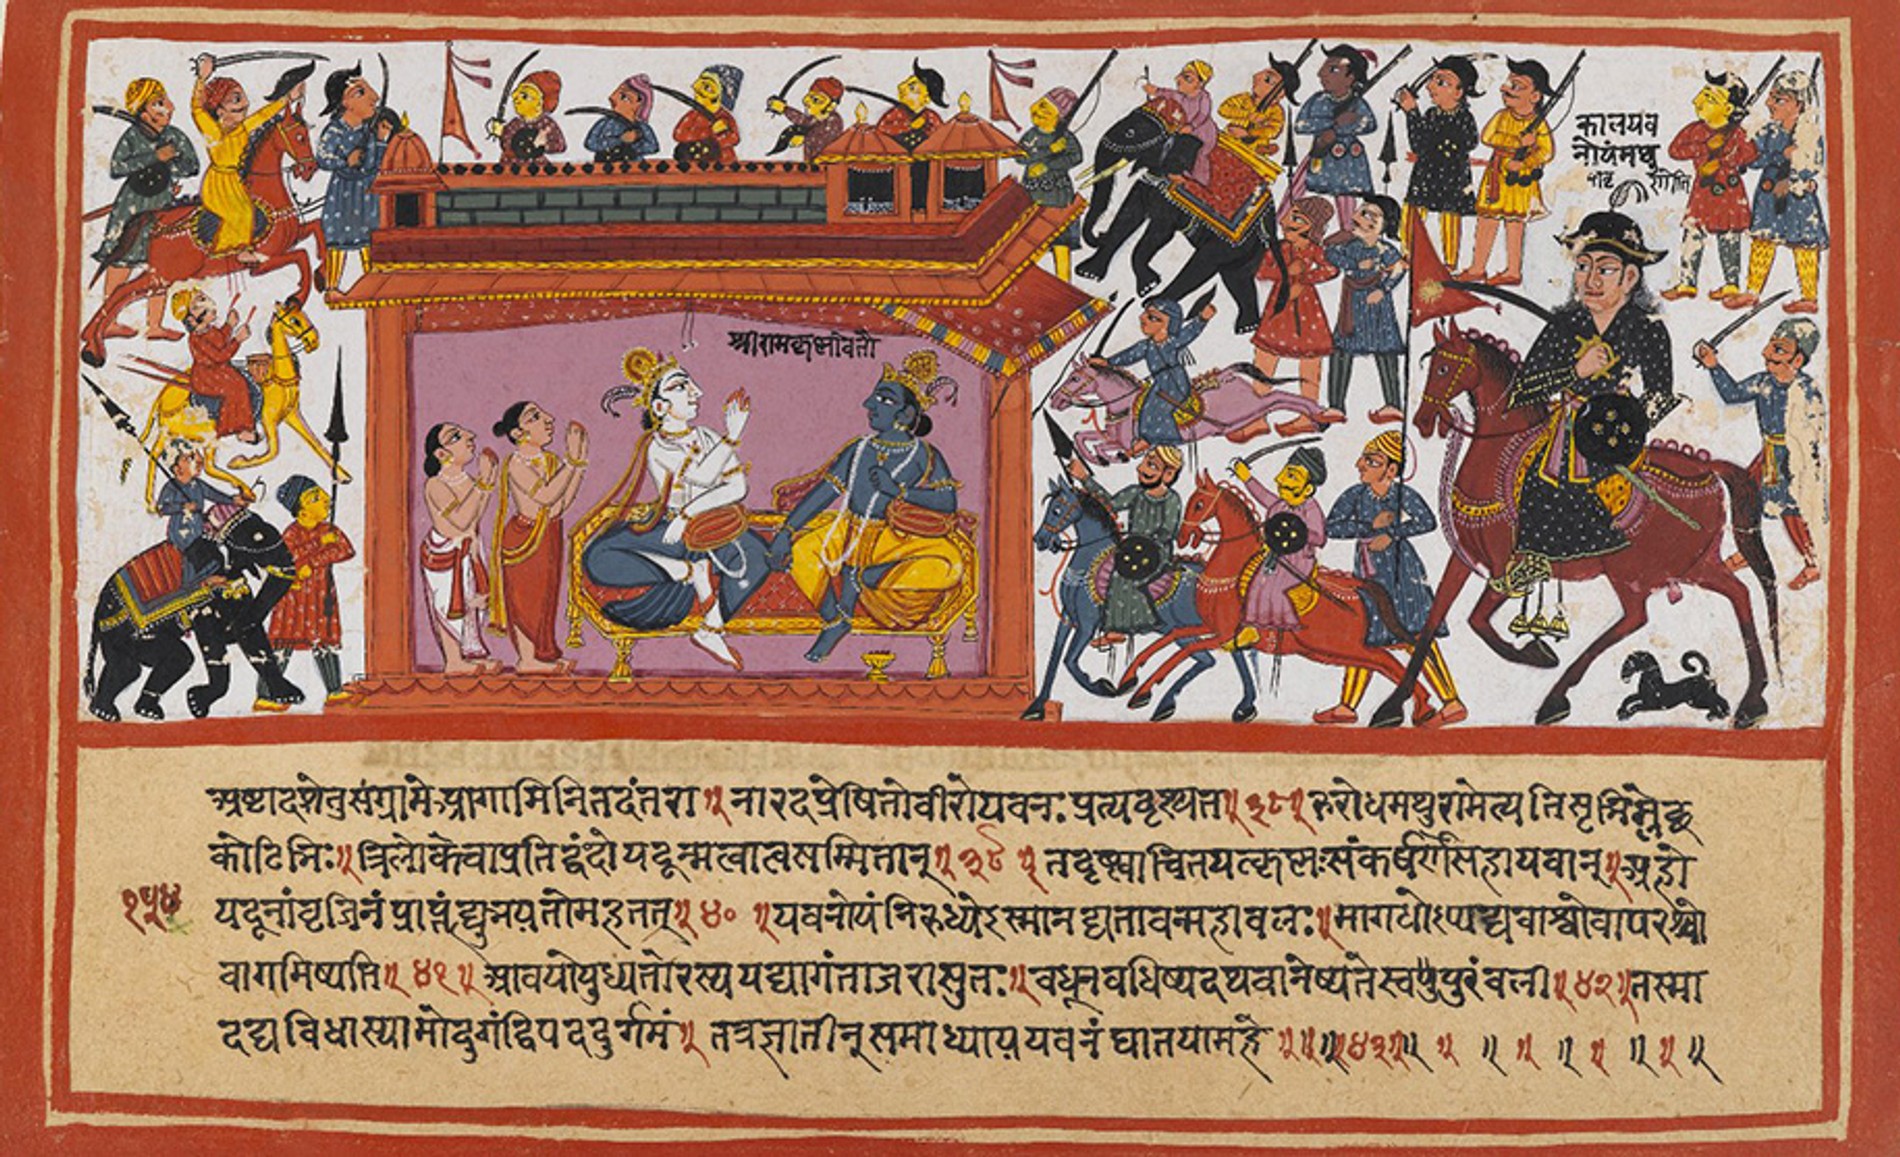 कालयव
नोयंमथु
श्रीरामकृष्णौ
अष्टादशेतुसंग्रामेआगामिनितदंतरा॥नारदप्रेषितोवीरोयवनःप्रत्यदृश्यत॥३८॥रुरोधमथुरामेत्यतिसृभिर्म्लेछ
कोटिभिः॥त्रिलोकेचाप्रतिद्वंदोयदून्मत्वात्मसम्मितान्॥३९॥तंदृष्ट्वाचिंतयत्कृष्णःसंकर्षणसहायवान्॥अहो
यदूनांवृजिनंप्राप्तंह्युभयतोमहत्तत्॥४०॥यवनोयंनिरुध्येऽस्मानद्यतावन्महाबलः॥मागधोऽप्यद्यवाश्वोवापरश्वो
१५४
वागमिष्यति॥४१॥आवयोयुध्यतोरस्ययद्यागंताजरासुतः॥बधून्वधिष्यदथवानेष्यतेस्वपुरंबली॥४२॥तस्मा
दद्यविधास्यामोदुर्गंद्विपददुर्गमं॥तत्रज्ञातीन्समाध्याययवनंघातयामहे॥॥४३॥॥॥॥॥॥॥॥